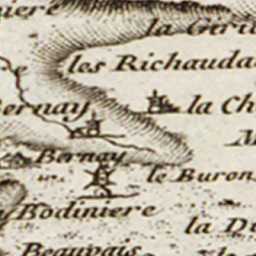 niere
la Giri
les Richauda
Bernay
la Ch
Bernay
le Buron
Bodiniere
la Du
Beauvais